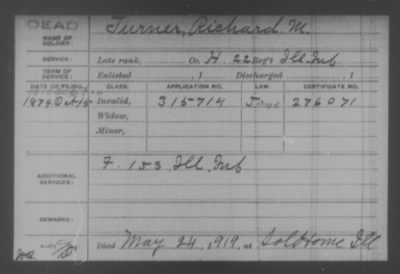 DEAD
NAME OF SOLDIER: Turner, Richard M.
SERVICE: Late rank, Co. H. 22 Reg't Ill. Inf.
TERM OF SERVICE: Enlisted , 1 Discharged , 1
DATE OF FILING. CLASS. APPLICATION NO. LAW. CERTIFICATE NO.
1879 Oct 15 Invalid, 315714 276071
Widow,
Minor,
ADDITIONAL SERVICES: F. 153. Ill. Inf
REMARKS:
Died May 24, 1919, at Sol Home Ill